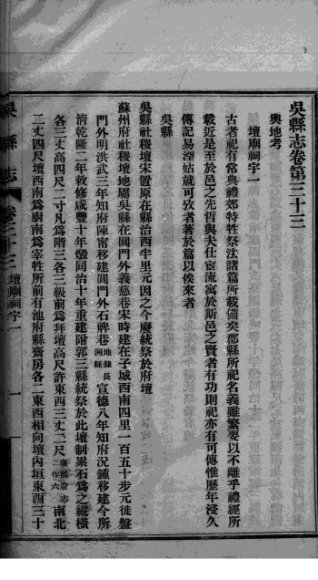 吳縣志卷第三十三
輿地考
壇廟祠宇一
古者祀有常典禮郊特牲祭法諸篇所載備矣郡縣所祀名義雖繁要以不離乎禮經所
載近是至於邑之先哲與夫仕宦流寓於斯邑之賢者有功則祀亦有可傳惟歷年浸久
傳記易湮姑就可攷者著於篇以俟來者
吳縣
吳縣社稷壇宋置原在縣治西半里元因之今廢統祭於府壇
蘇州府社稷壇地屬吳縣在閶門外義慈巷宋時建在子城西南四里一百五十步元徙盤
門外明洪武三年知府陳甯移建閶門外石牌巷地隸長洲縣宣德八年知府況鍾移建今所
清乾隆二年敕修咸豐十年燬同治十年重建附郭三縣統祭於此壇制累石爲之縱橫
各三丈高四尺二寸凡爲階三各三級前爲拜壇高尺許東西三丈二尺南北
二丈四尺壇西南爲廚南爲宰牲所前有池府縣齋房各二東西相向壇內垣東西三十
吳縣志
卷三十三
壇廟祠宇一
一